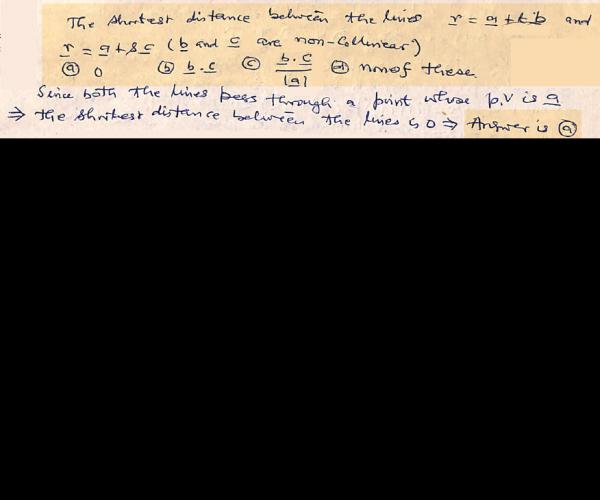 The shortest distance between the lines r = a + t b and
r = a + s c (b and c are non-collinear)
(a) 0 (b) b.c (c) b.c/|a| (d) none of these.
Since both the lines pass through a point whose p.v is a
⇒ the shortest distance between the lines is 0 ⇒ Answer is (a)